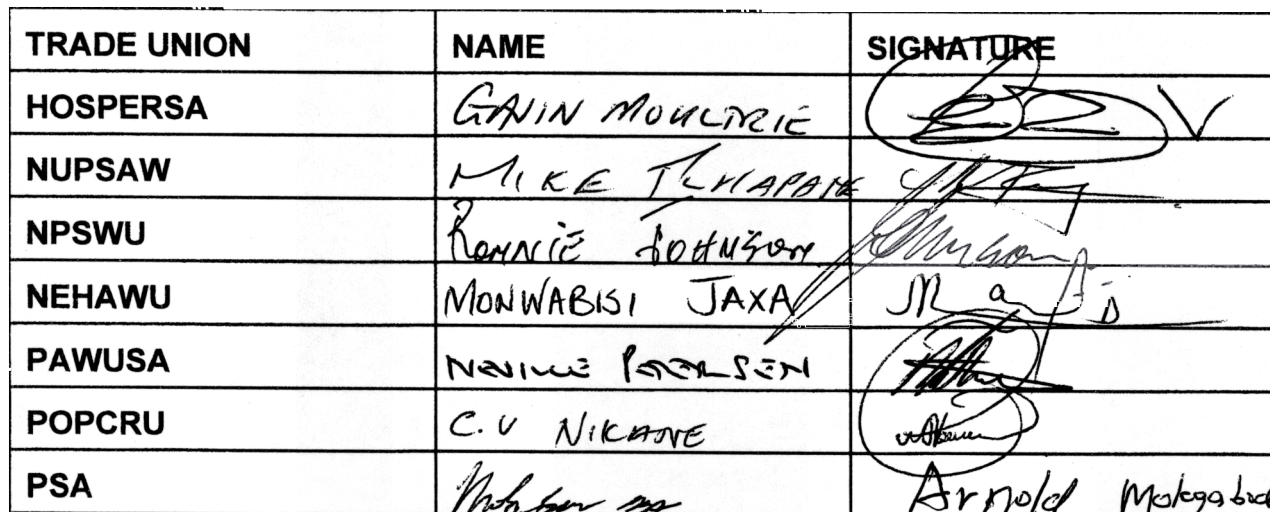 TRADE UNION NAME SIGNATURE
HOSPERSA GAVIN MOULTRIE
NUPSAW MIKE TLHAPANE
NPSWU RONNIE JOHNSON
NEHAWU MONWABISI JAXA
PAWUSA NEVILLE PETERSEN
POPCRU C.V NIKANE
PSA Arnold